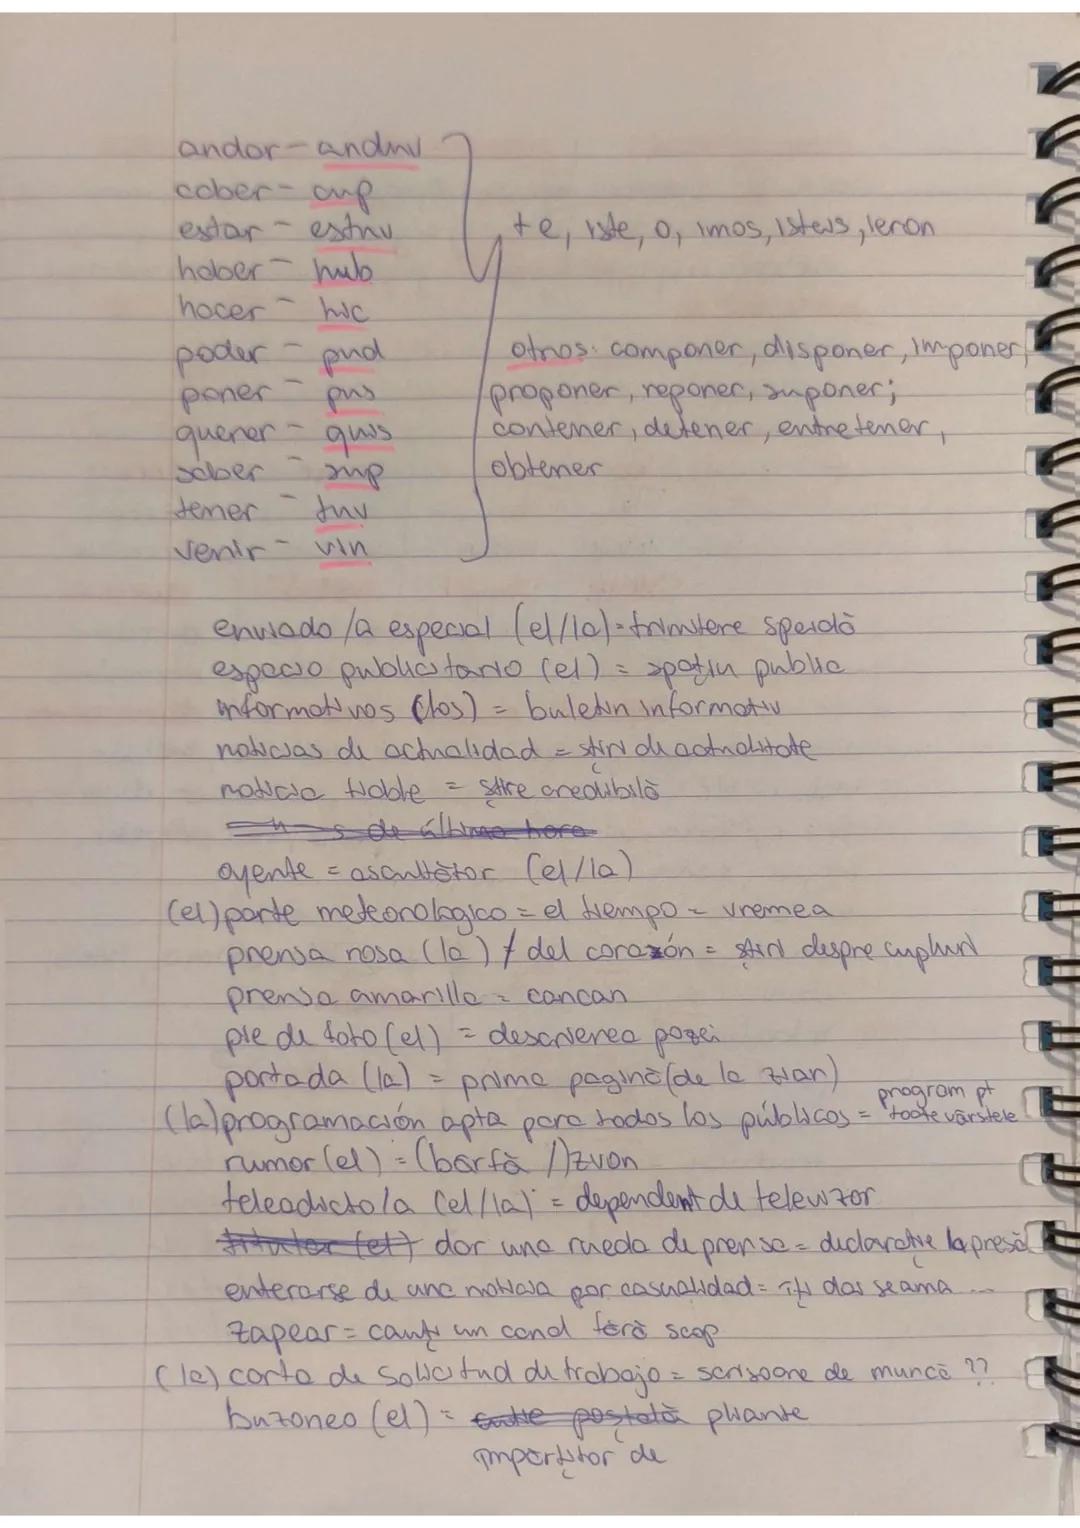 andar - anduv
caber - cup
estar - estuv
haber - hub
hacer - hic
poder - pud
poner - pus
querer - quis
saber - sup
tener - tuv
venir - vin
+ e, iste, o, imos, isteis, ieron
otros: componer, disponer, imponer,
proponer, reponer, suponer;
contener, detener, entretener,
obtener
enviado/a especial (el/la) = trimitere
espacio publicitario (el) = spațiu public
informativos (los) = buletin informativ
noticias de actualidad = știri de actualitate
noticia fiable = știre credibilă
s de última hora
oyente = ascultător (el/la)
(el) parte meteorologico = el tiempo = vremea
prensa rosa (la) / del corazón = știri despre cupluri
prensa amarilla = cancan
pie de foto (el) = descrierea pozei
portada (la) = prima pagină (de la ziar)
(la) programación apta para todos los públicos = program pt toate vârstele
rumor (el) = (bârfă /) zvon
teleadicto/a (el/la) = dependent de televizor
titular (el) dar una rueda de prensa = declarație la presă
enterarse de una noticia por casualidad = îți dai seama ...
zapear = cauți un canal fără scop
(la) carta de solicitud de trabajo = scrisoare de muncă ??
buzoneo (el) = cutie poștală pliante
împărțitor de